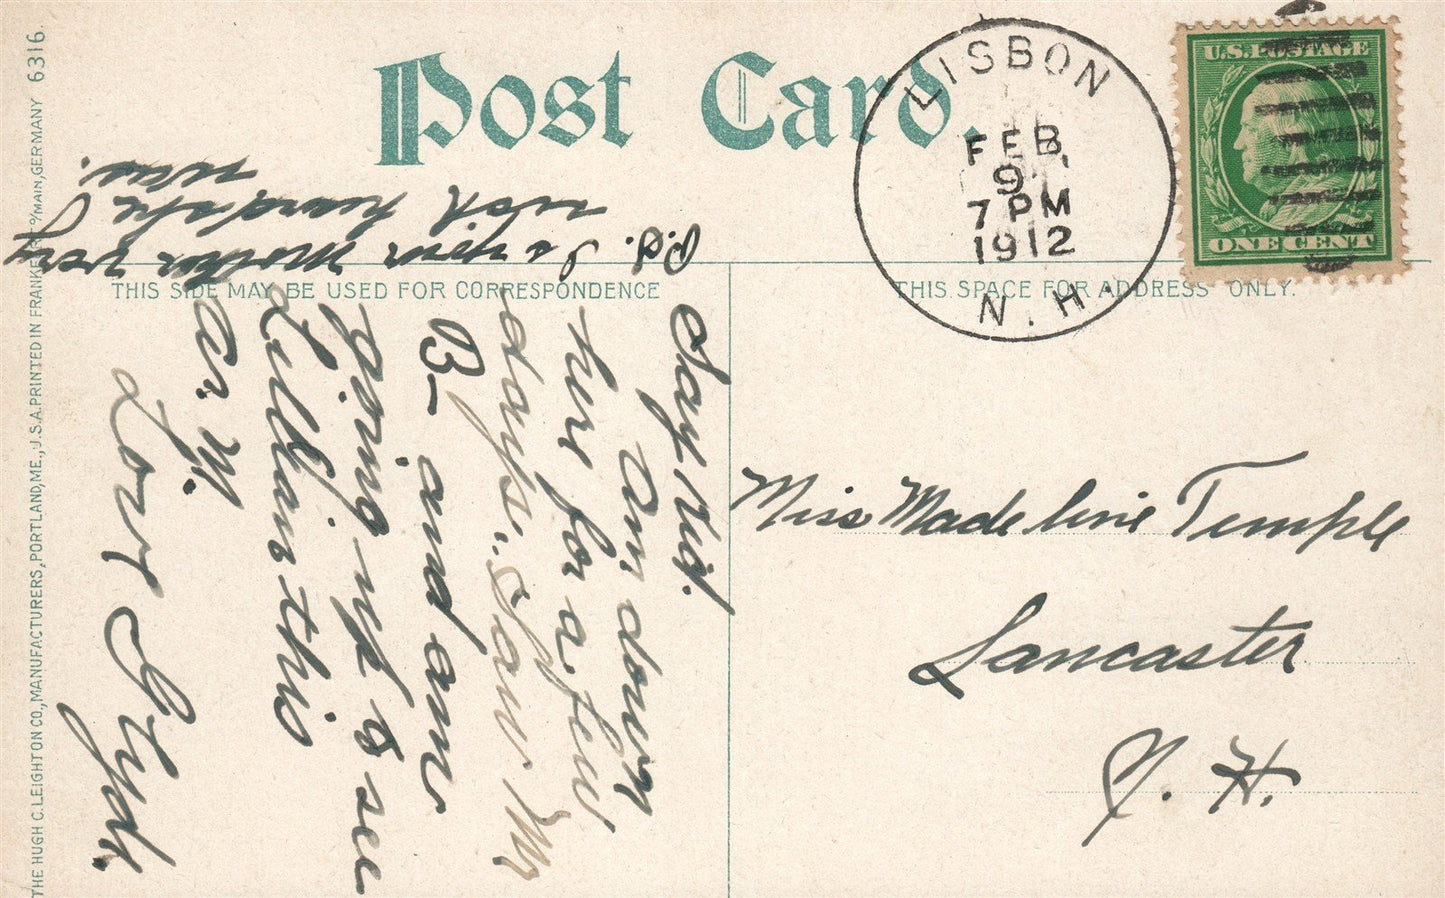 Post Card.
THIS SIDE MAY BE USED FOR CORRESPONDENCE
THIS SPACE FOR ADDRESS ONLY.
THE HUGH C. LEIGHTON CO., MANUFACTURERS, PORTLAND, ME., U.S.A. PRINTED IN FRANKFORT O/MAIN, GERMANY 6316.
LISBON
FEB
9
7 PM
1912
N.H.
U.S. POSTAGE
ONE CENT
Miss Madeline Temple
Lancaster
N. H.
Say
Am down
here for a few
days. Saw Mr
B— and am
going up to see
Lillian this
a. M.
P.S. Is your Mother very
sick heard she
was.